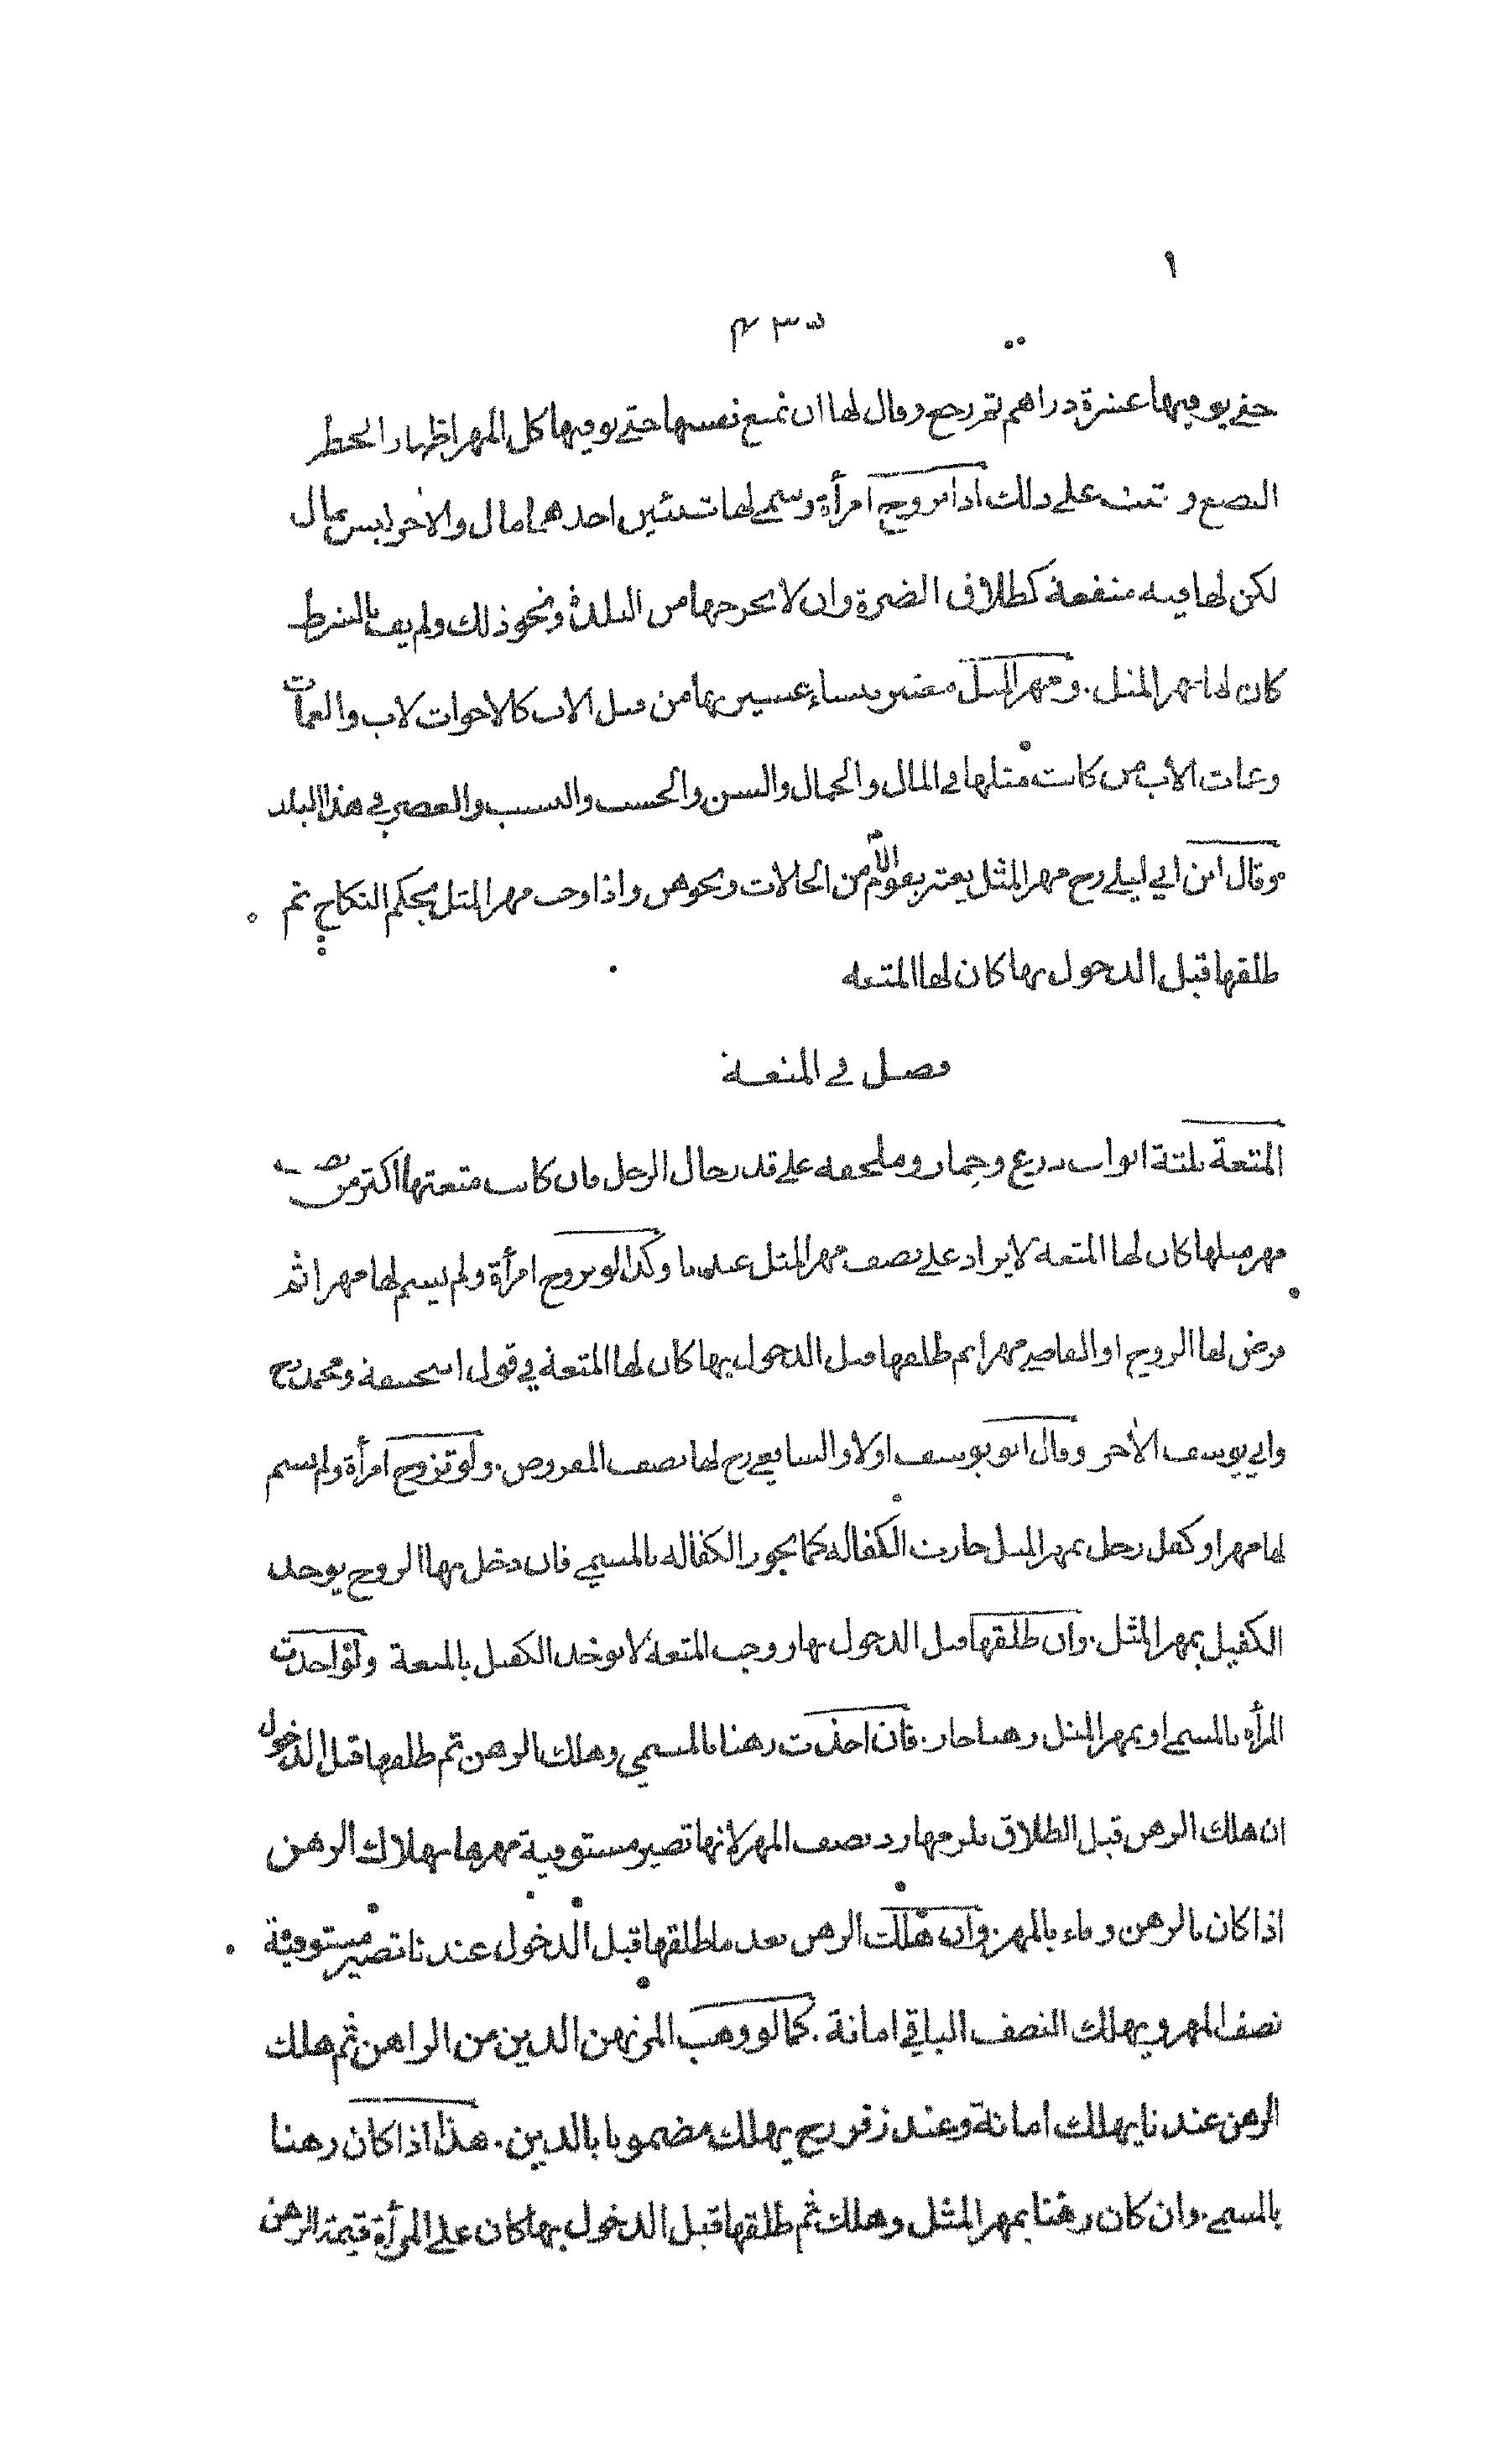 ١
حتى يوفيها عشرة دراهم ثم رجع وقال لها ان تمنع نفسها حتى يوفيها كل المهر اظهار الخطر
البضع و على ذلك اذا تزوج امرأة وسمى لها شيئين احدهما مال والاخر ليس بمال
لكن لها فيه منفعة كطلاق الضرة وان لا يخرجها من البلدة ونحو ذلك ولم يف بالشرط
كان لها مهر المثل . ومهر المثل معتبر بنساء عشيرتها من قبل الاب كالاخوات لاب والعمات
وعمات الاب من كانت مثلها في المال والجمال والسن والحسب والنسب والعصر في هذا البلد
وقال ابن ابي ليلى رح مهر المثل يعتبر بقوم الام من الخالات ونحوهن واذا وجب مهر المثل بحكم النكاح ثم
طلقها قبل الدخول بها كان لها المتعه
فصل في المتعة
المتعة ثلثة اثواب درع وخمار وملحفه على قدر حال الرجل فان كانت متعتها اكثر من نصف
مهر مثلها كان لها المتعه لا يزاد على نصف مهر المثل عندنا وكذا لو تزوج امرأة ولم يسم لها مهرا ثم
فرض لها الزوج او القاضي مهرا ثم طلقها قبل الدخول بها كان لها المتعة في قول ابي حنيفة ومحمد رح
وابي يوسف الاخر وقال ابو يوسف اولا والشافعي رح لها نصف المفروض . ولو تزوج امرأة ولم يسم
لها مهرا وكفل رجل بمهر المثل جازت الكفاله كما يجوز الكفاله بالمسمى فان دخل بها الزوج يوخذ
الكفيل بمهر المثل . وان طلقها قبل الدخول بها ووجب المتعة لا يوخذ الكفيل بالمتعة ولو اخذت
المرأه بالمسمى او بمهر المثل رهنا جاز . فان اخذت رهنا بالمسمى وهلك الرهن ثم طلقها قبل الدخول
ان هلك الرهن قبل الطلاق يلزمها رد نصف المهر لانها تصير مستوفية مهرها بهلاك الرهن
اذا كان بالرهن وفاء بالمهر وان هلك الرهن بعد ما طلقها قبل الدخول عندنا تصير مستوفية
نصف المهر ويهلك النصف الباقي امانة . كما لو وهب المرتهن الدين من الراهن ثم هلك
الرهن عندنا يهلك امانة وعند زفر رح يهلك مضمونا بالدين . هذا اذا كان رهنا
بالمسمى . وان كان رهنا بمهر المثل وهلك ثم طلقها قبل الدخول بها كان على المرأة قيمة الرهن